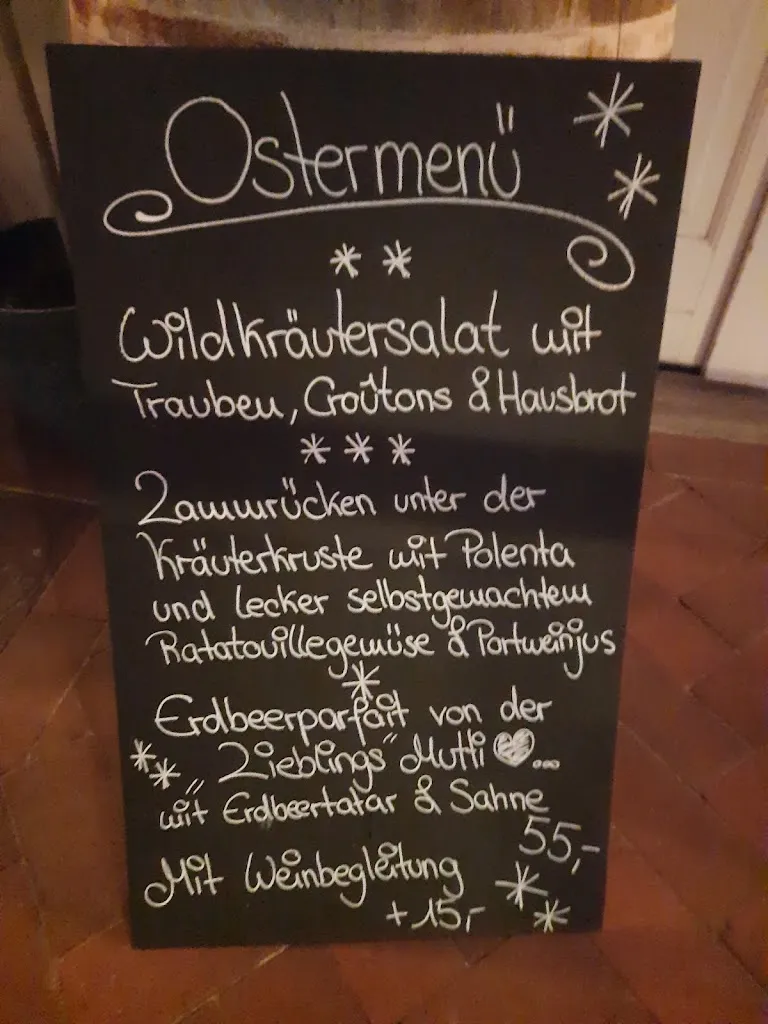 Ostermenü
Wildkräutersalat mit
Trauben, Croûtons & Hausbrot
Lammrücken unter der
Kräuterkruste mit Polenta
und lecker selbstgemachtem
Ratatouillegemüse & Portweinjus
Erdbeerparfait von der
„Lieblings" Mutti ♥...
mit Erdbeertatar & Sahne
55,-
Mit Weinbegleitung
+15,-